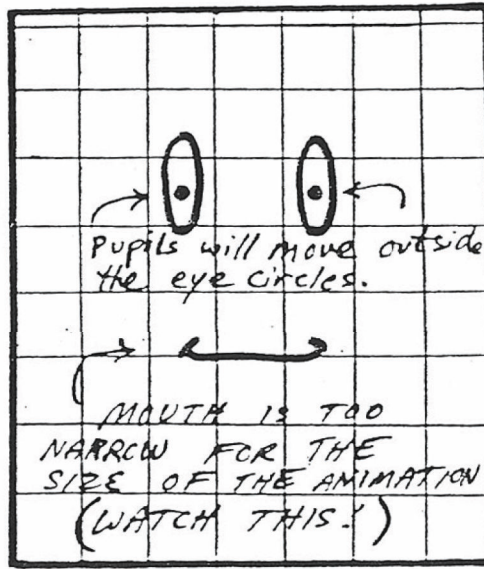 Pupils will move outside
the eye circles.
MOUTH IS TOO
NARROW FOR THE
SIZE OF THE ANIMATION
(WATCH THIS!)